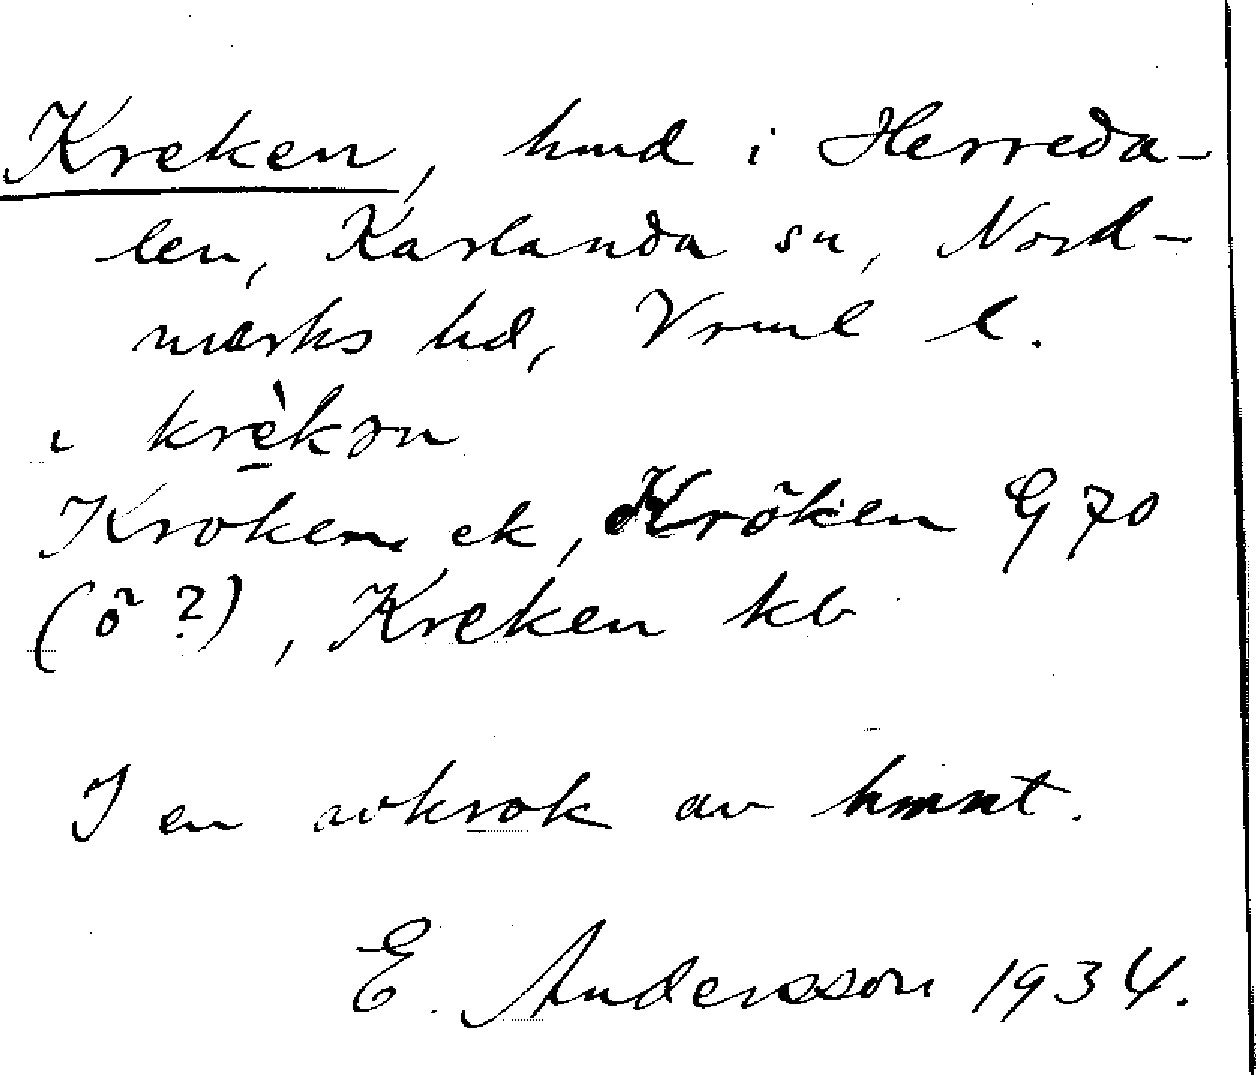 Kreken, hmd i Herreda-
len, Karlanda sn, Nord-
marks hd, Vrml l.
i krèkən
Kroken ek, Krõken G 70
(õ ?), Kreken kb
I en avkrok av hmnt.
E. Andersson 1934.